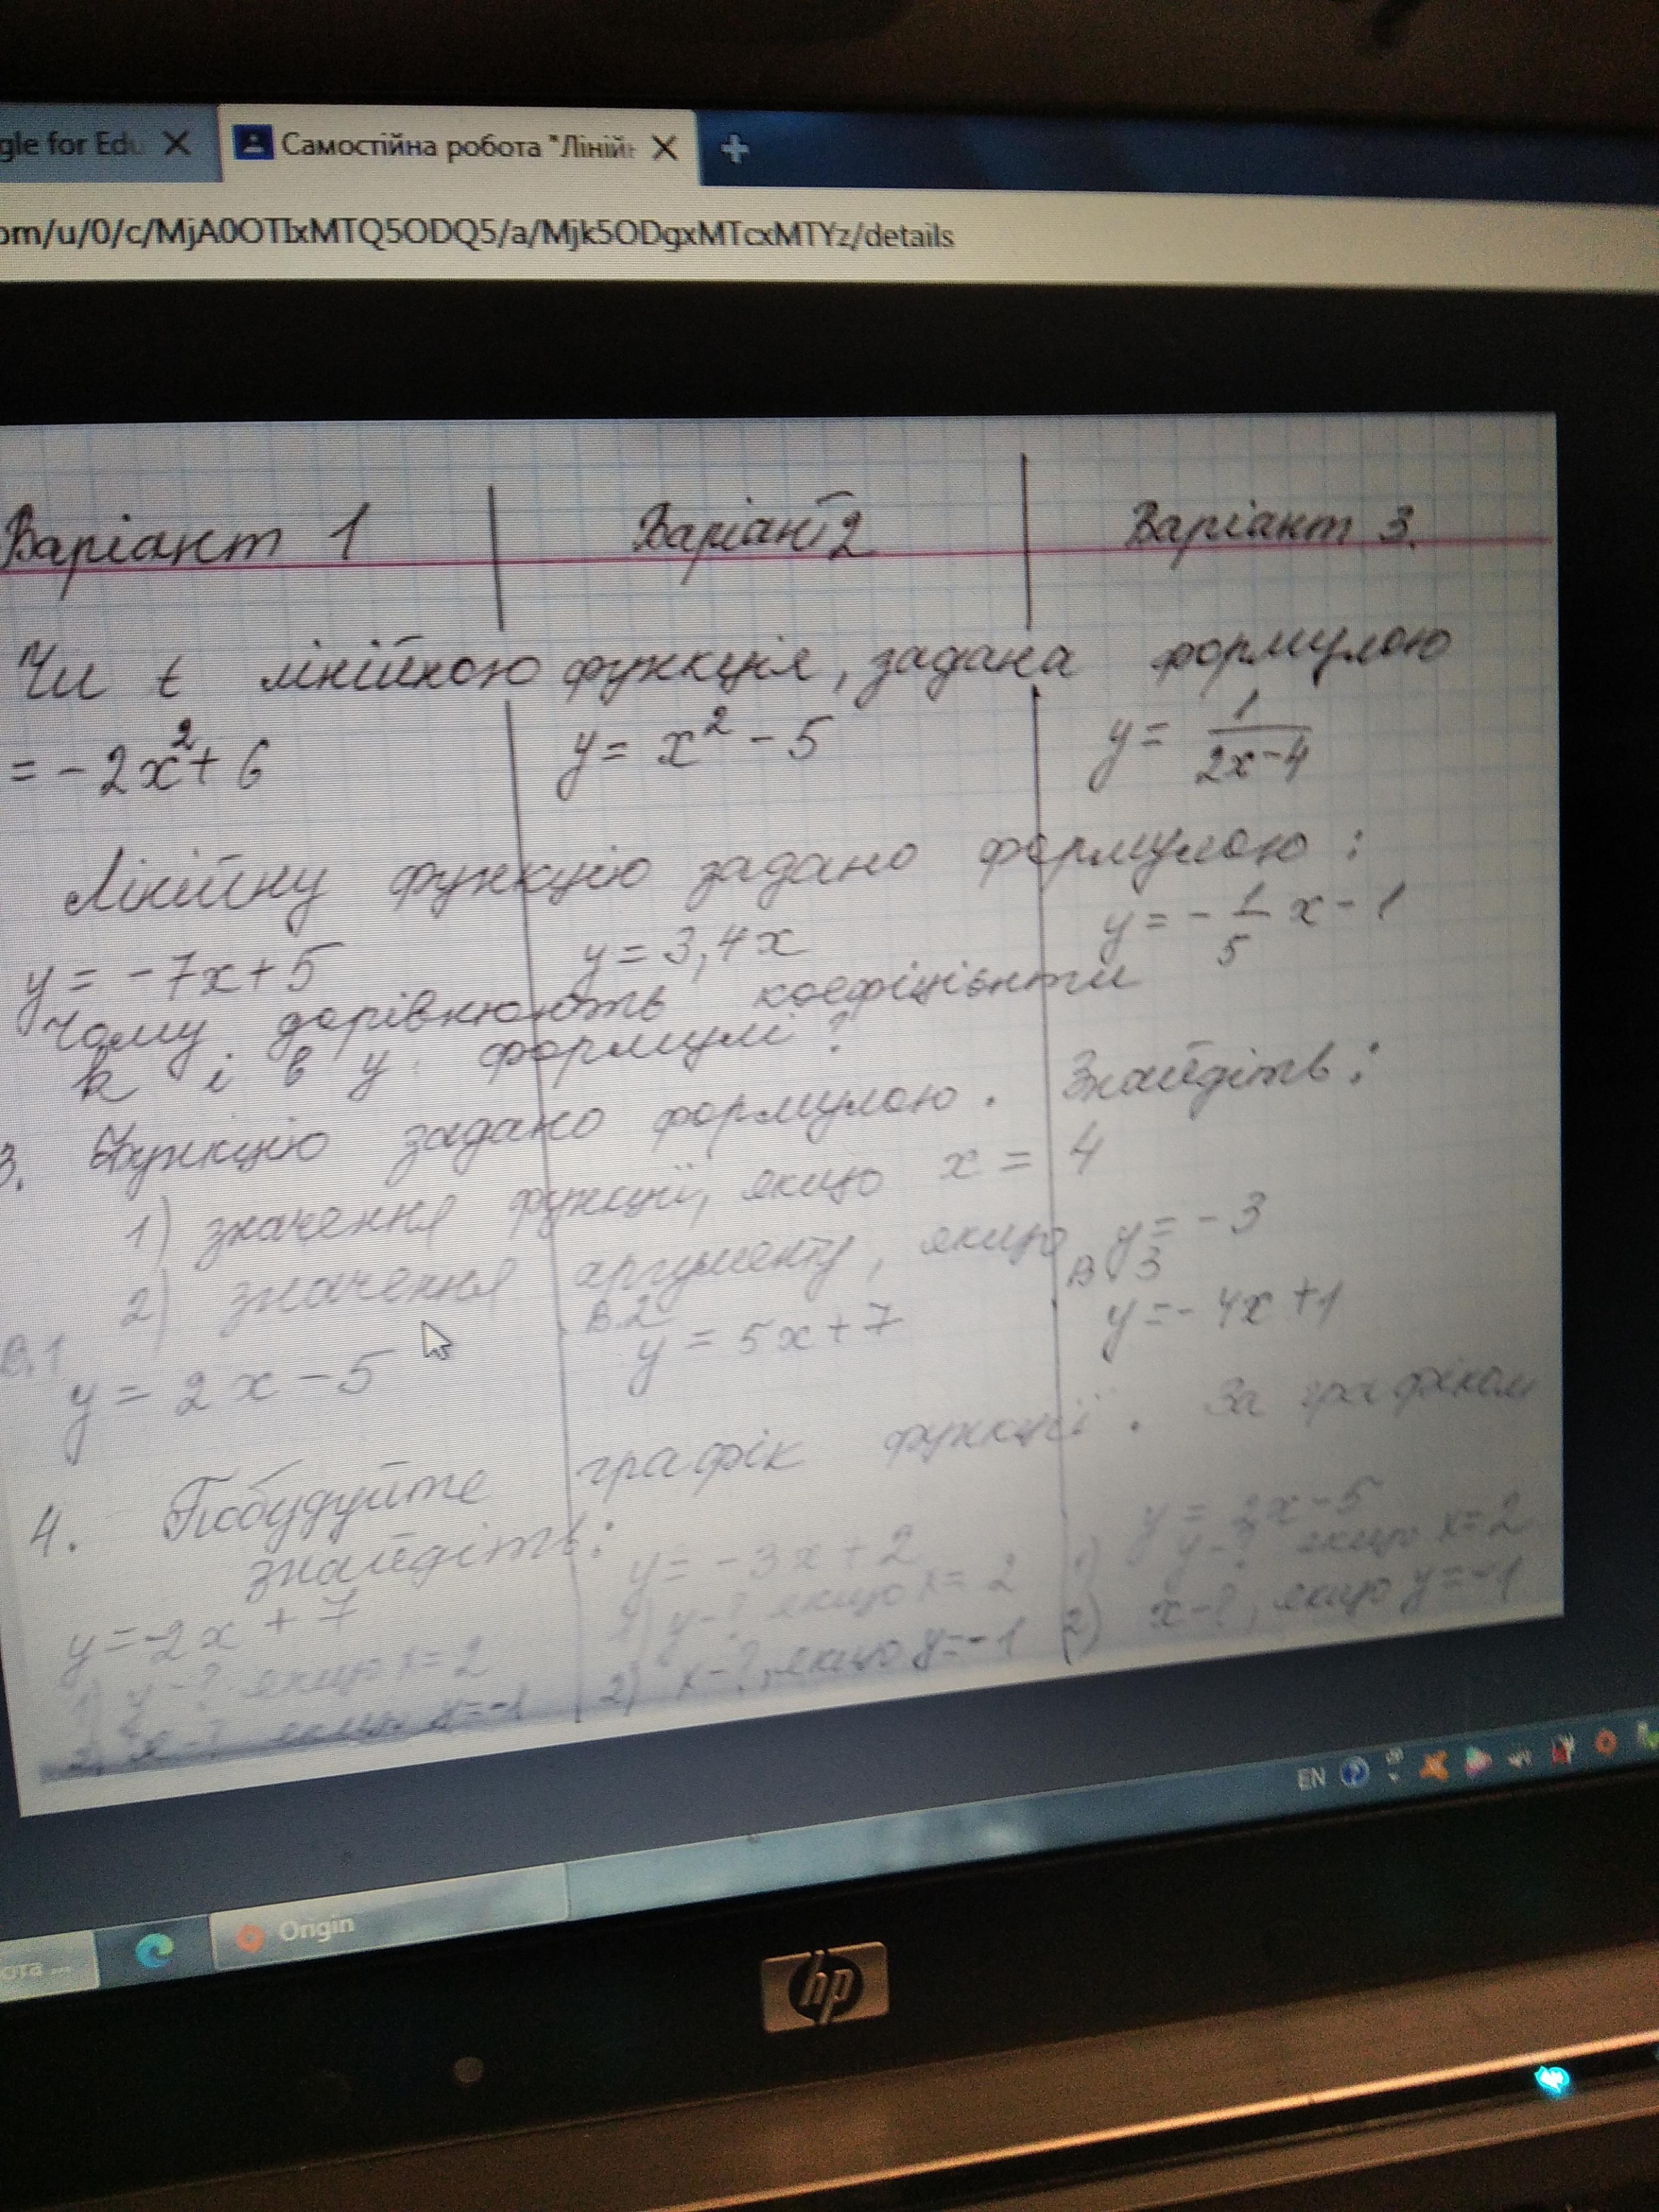 gle for Edu
Самостійна робота "Лінійн
om/u/0/c/MjA0OTIxMTQ5ODQ5/a/Mjk5ODgxMTcxMTYz/details
Варіант 1 Варіант 2 Варіант 3.
Чи є лінійною функція, задана формулою
= -2x²+6 y = x² - 5 y = 1/(2x-4)
Лінійну функцію задано формулою:
y = -7x+5 y = 3,4x y = -1/5 x - 1
Чому дорівнюють коефіцієнти
k і b у формулі?
3. Функцію задано формулою. Знайдіть:
1) значення функції, якщо x = 4
2) значення аргументу, якщо y = -3
В.1 В.2 В.3
y = 2x-5 y = 5x+7 y = -4x+1
4. Побудуйте графік функції. За графіком
знайдіть:
y = -2x + 7 y = -3x + 2 y = 2x-5
1) y-? якщо x=2 1) y-? якщо x=2 1) y-? якщо x=2
2) x-? якщо y=-1 2) x-?, якщо y=-1 2) x-?, якщо y=-1
EN
ота ...
Origin
hp